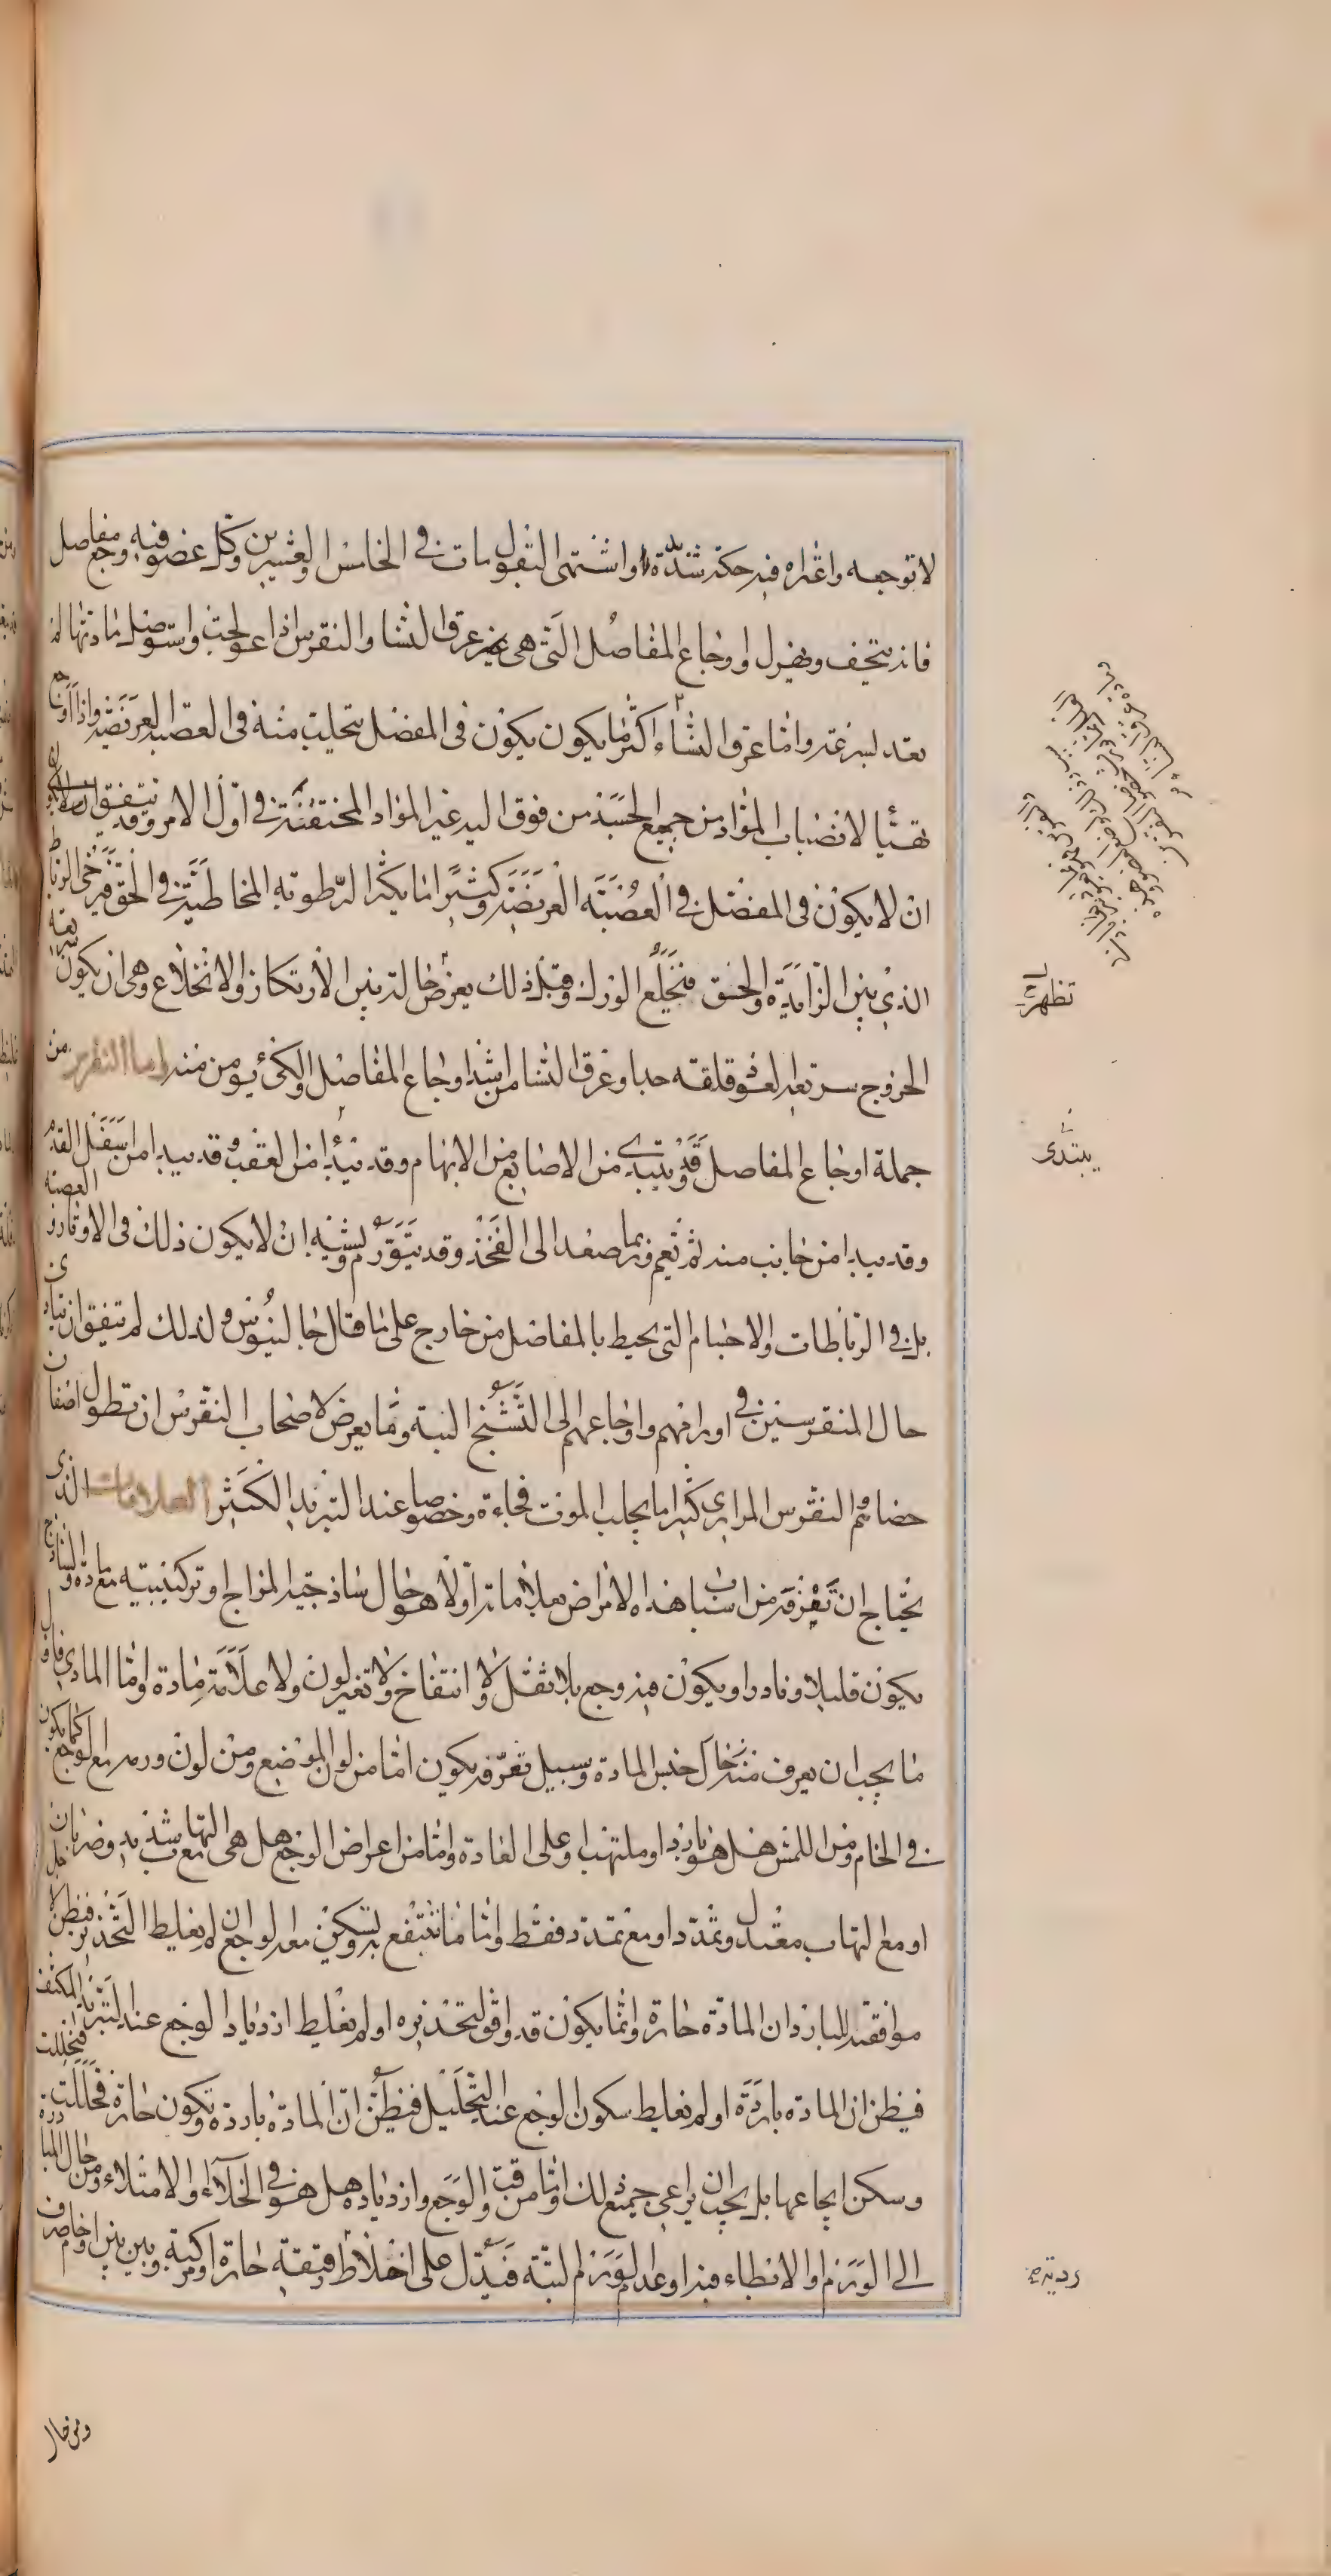 لا توجعه واعتراه فيه حكة شديدة واشتهى البقول مات فى الخامس والعشرين وكل عضو فيه وجع مفاصل
فانه ينحف ويهزل واوجاع المفاصل التى هى غير عرق النسا والنقرس اذا عولجت واستوصل مادتها لم
تعد بسرعة واما عرق النساء اكثر ما يكون يكون فى المفصل يتحلب منه فى العصبة العريضة واذا اوجع
تهيأ لانصباب المواد من جميع الجسد من فوق اليه غير المواد المحتقنة فى اول الامر وقد يتفق
ان لا يكون فى المفصل فى العصبة العريضة وكثيرا ما يكثر الرطوبة المخاطية فى الحق فيرخى الرباط
الذى بين الزايدة والحق فينخلع الورك وقبل ذلك يعرض حالة بين الارتكاز والانخلاع وهى ان يكون سريعة
الخروج سريعة العود قلقة جدا وعرق النسا من اشد اوجاع المفاصل والكى يومن منه اما النقرس من
جملة اوجاع المفاصل قد يبتدى من الاصابع من الابهام وقد يبتدا من العقب وقد يبدا من اسفل القدم
وقد يبدا من جانب منه ثم يعم وربما صعد الى الفخذ وقد يتورم ويشبه ان لا يكون ذلك فى الاوتار والعصبة
بل فى الرباطات والاجسام التى يحيط بالمفاصل من خارج على ما قال جالينوس ولذلك لم يتفق ان يتادى
حال المنقرسين فى اورامهم واوجاعهم الى التشنج البتة ومما يعرض لاصحاب النقرس ان تطول اصفان
خصائهم النقرس المرارى كثيرا ما يجلب الموت فجاءة وخصوصا عند التبريد الكثير العلامات الذى
يحتاج ان تعرفه من اسباب هذا الامراض بعلاماته اولا هو حال ساذجية المزاج او تركيبيته مع مادة والساذج
يكون قليلا ونادرا ويكون فيه وجع بلا ثقل ولا انتفاخ ولا تغير لون ولا علامة مادة واما المادى فاول
ما يجب ان يعرف منه حال جنس المادة وسبيل تعرفه يكون اما من لون الموضع ومن لون ورمه مع الوجع كما يكون
فى الخام ومن اللمس هل هو بارد او ملتهب او على العادة واما من اعراض الوجع هل هى مع التهاب شديد وضربان
او مع التهاب معتدل وتمدد او مع تمدد فقط واما ما ينتفع به ويسكن معه الوجع ان لا يغلط التخدير فيظن
موافقته للبارد ان المادة حارة وانما يكون قد وافق لتخذيره او لم يغلط ازدياد الوجع عند التبريد المكثف
فيظن ان المادة باردة او لم يغلط سكون الوجع عند التحليل فيظن ان المادة باردة وتكون حارة فتحللت
وسكن ايجاعها بل يجب ان يراعى جميع ذلك واما من وقت الوجع وازدياده هل هو فى الخلاء او الامتلاء ومن حال المبادرة
الى الورم والابطاء فيه او عدم الورم البتة فيدل على اخلاط رقيقة حارة او مركبة وبين بين او خام صرف
تظهر
يبتدى
ردية
ومن حال